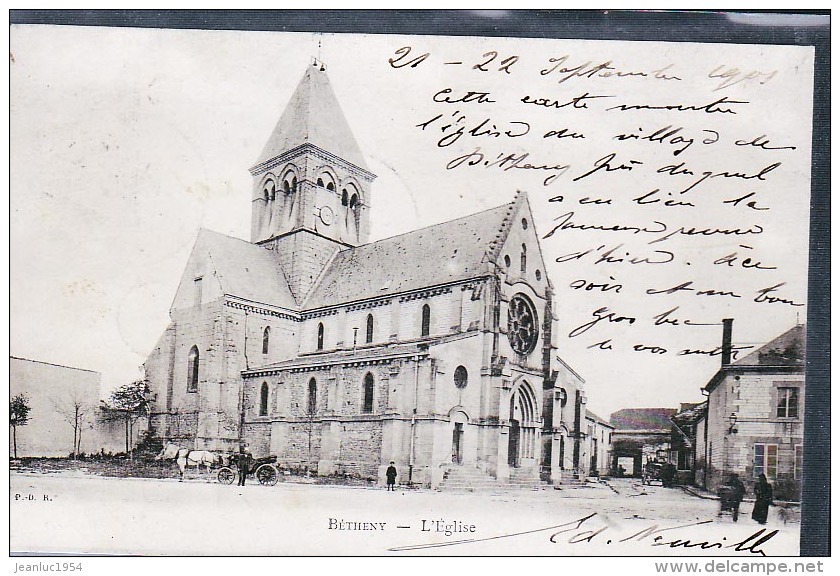 21 - 22 Septembre 1901
Cette carte montre
l'église du village de
Bétheny près duquel
a eu lieu la
fameuse revue
d'hier.
soir et un bon
gros bec
à vos
P.-D. R.
BÉTHENY — L'Église
Ed. Neuville
jeanluc1954
www.delcampe.net